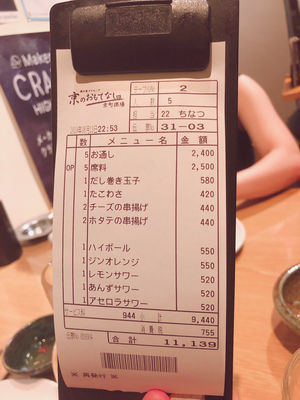 京のおもてなし
テーブルNo 2
人数 5
担当 22 ちなつ
22:53
31-03
数 メニュー名 金額
5 お通し 2,400
OP 5 席料 2,500
1 だし巻き玉子 580
1 たこわさ 420
2 チーズの串揚げ 440
2 ホタテの串揚げ 440
1 ハイボール 550
1 ジンオレンジ 550
1 レモンサワー 520
1 あんずサワー 520
1 アセロラサワー 520
サービス料 944 小計 9,440
消費税 755
合計 11,139
※ 再発行 ※
CRA
HIGH